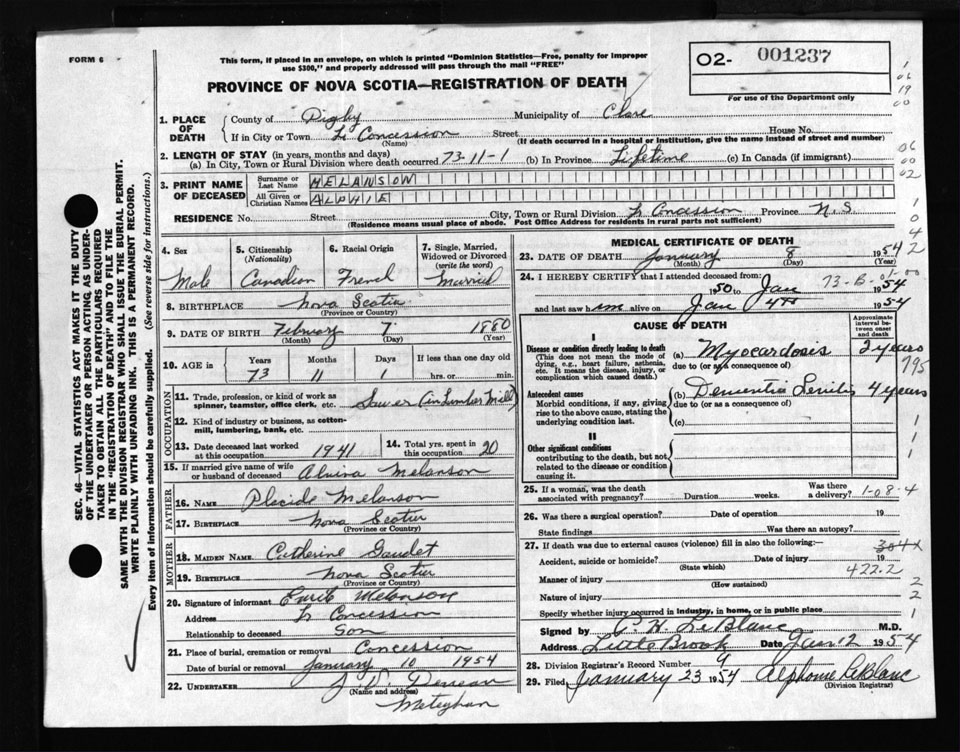 FORM 6
This form, if placed in an envelope, on which is printed "Dominion Statistics—Free, penalty for improper
use $300," and properly addressed will pass through the mail "FREE"
O2- 001237
For use of the Department only
PROVINCE OF NOVA SCOTIA—REGISTRATION OF DEATH
1. PLACE OF DEATH
County of Digby Municipality of Clare
If in City or Town La Concession Street House No.
(Name) (If death occurred in a hospital or institution, give the name instead of street and number)
2. LENGTH OF STAY (in years, months and days)
(a) In City, Town or Rural Division where death occurred 73-11-1 (b) In Province Lifetime (c) In Canada (if immigrant)
3. PRINT NAME OF DECEASED
Surname or Last Name MELANSON
All Given or Christian Names ALPHIE
RESIDENCE No. Street City, Town or Rural Division La Concession Province N.S.
(Residence means usual place of abode. Post Office Address for residents in rural parts not sufficient)
4. Sex
Male
5. Citizenship (Nationality)
Canadian
6. Racial Origin
French
7. Single, Married, Widowed or Divorced (write the word)
Married
8. BIRTHPLACE Nova Scotia
(Province or Country)
9. DATE OF BIRTH February 7 1880
(Month) (Day) (Year)
10. AGE in
Years Months Days If less than one day old
73 11 1 hrs. or min.
OCCUPATION
11. Trade, profession, or kind of work as spinner, teamster, office clerk, etc. Sawer (in Lumber Mill)
12. Kind of industry or business, as cotton-mill, lumbering, bank, etc.
13. Date deceased last worked at this occupation 1941
14. Total yrs. spent in this occupation 20
15. If married give name of wife or husband of deceased Alvina Melanson
FATHER
16. NAME Placide Melanson
17. BIRTHPLACE Nova Scotia
(Province or Country)
MOTHER
18. MAIDEN NAME Catherine Gaudet
19. BIRTHPLACE Nova Scotia
(Province or Country)
20. Signature of informant Melanson
Address La Concession
Relationship to deceased Son
21. Place of burial, cremation or removal Concession
Date of burial or removal January 10 1954
22. UNDERTAKER
(Name and address)
Meteghan
MEDICAL CERTIFICATE OF DEATH
23. DATE OF DEATH January 8 1954
(Month) (Day)
24. I HEREBY CERTIFY that I attended deceased from:
1950 to Jan 1954
and last saw him alive on Jan 4th 1954
CAUSE OF DEATH
Approximate interval between onset and death
I
Disease or condition directly leading to death
(This does not mean the mode of dying, e.g., heart failure, asthenia, etc. It means the disease, injury, or complication which caused death.)
(a) Myocardosis 2 years
due to (or as a consequence of)
795
Antecedent causes
Morbid conditions, if any, giving rise to the above cause, stating the underlying condition last.
(b) Dementia Senilis 4 years
due to (or as a consequence of)
(c)
II
Other significant conditions
contributing to the death, but not related to the disease or condition causing it.
25. If a woman, was the death associated with pregnancy? Duration weeks. Was there a delivery?
1-08-4
26. Was there a surgical operation? Date of operation 19
State findings Was there an autopsy?
27. If death was due to external causes (violence) fill in also the following:—
304x
Accident, suicide or homicide? Date of injury 19
(State which)
422.2
Manner of injury
(How sustained)
Nature of injury
Specify whether injury occurred in industry, in home, or in public place
Signed by H. LeBlanc M.D.
Address Little Brook Date Jan 12 1954
28. Division Registrar's Record Number 9
29. Filed January 23 1954 Alphonse LeBlanc
(Division Registrar)
SEC. 46—VITAL STATISTICS ACT MAKES IT THE DUTY
OF THE UNDERTAKER OR PERSON ACTING AS UNDER-
TAKER TO OBTAIN ALL THE PARTICULARS REQUIRED
IN THE "REGISTRATION OF DEATH" AND TO FILE THE
SAME WITH THE DIVISION REGISTRAR WHO SHALL ISSUE THE BURIAL PERMIT.
WRITE PLAINLY WITH UNFADING INK. THIS IS A PERMANENT RECORD.
Every item of information should be carefully supplied. (See reverse side for instructions.)